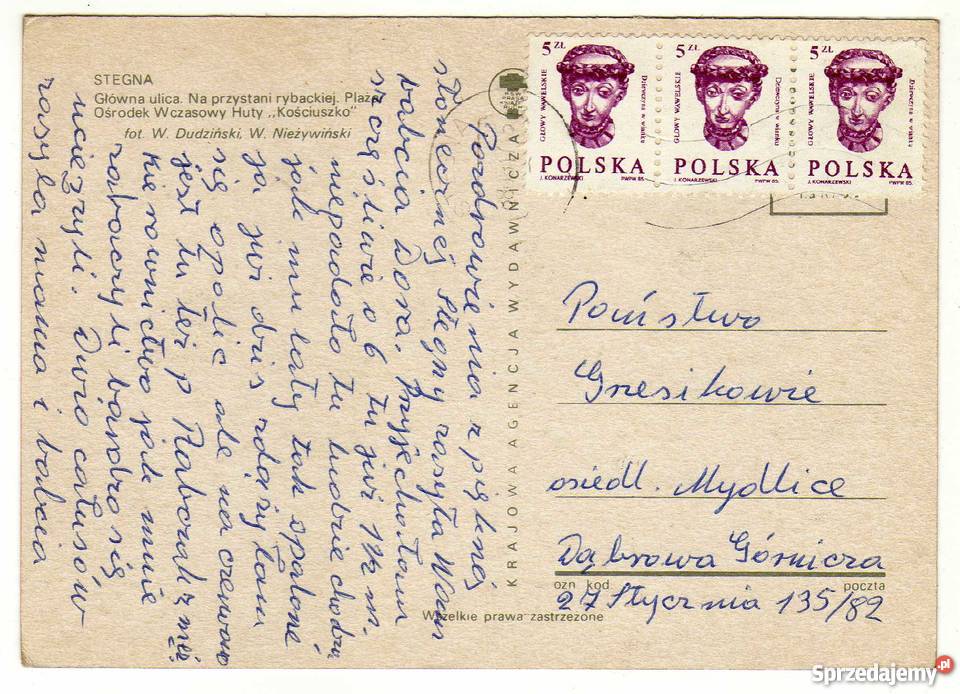 STEGNA
Główna ulica. Na przystani rybackiej. Plaża
Ośrodek Wczasowy Huty „Kościuszko"
fot. W. Dudziński, W. Nieżywiński
Pozdrowienia z pięknej
słonecznej Stegny zasyła Wam
babcia Dora. Przyjechałam
szczęśliwie o 6 tu już
niepadało tu ludzie chodzą
jak mulaty tak spalone
ja już dziś zdążyłam
się opalić ale na czerwono
jest tu też p Rabczak z mej
kierownictwo jak mnie
zabaczyli bardzo się
ucieszyli. Dużo całusów
zasyła mama i babcia
KRAJOWA AGENCJA WYDAWNICZA
5 ZŁ
GŁOWY WAWELSKIE
Dziewczyna w wianku
POLSKA
J. KONARZEWSKI PWPW 85.
5 ZŁ
GŁOWY WAWELSKIE
Dziewczyna w wianku
POLSKA
J. KONARZEWSKI PWPW 85.
5 ZŁ
GŁOWY WAWELSKIE
Dziewczyna w wianku
POLSKA
J. KONARZEWSKI PWPW 85.
Państwo
Grzesikowie
osiedl. Mydlice
Dąbrowa Górnicza
ozn kod poczta
27 Stycznia 135/82
Wszelkie prawa zastrzeżone
Sprzedajemy.pl